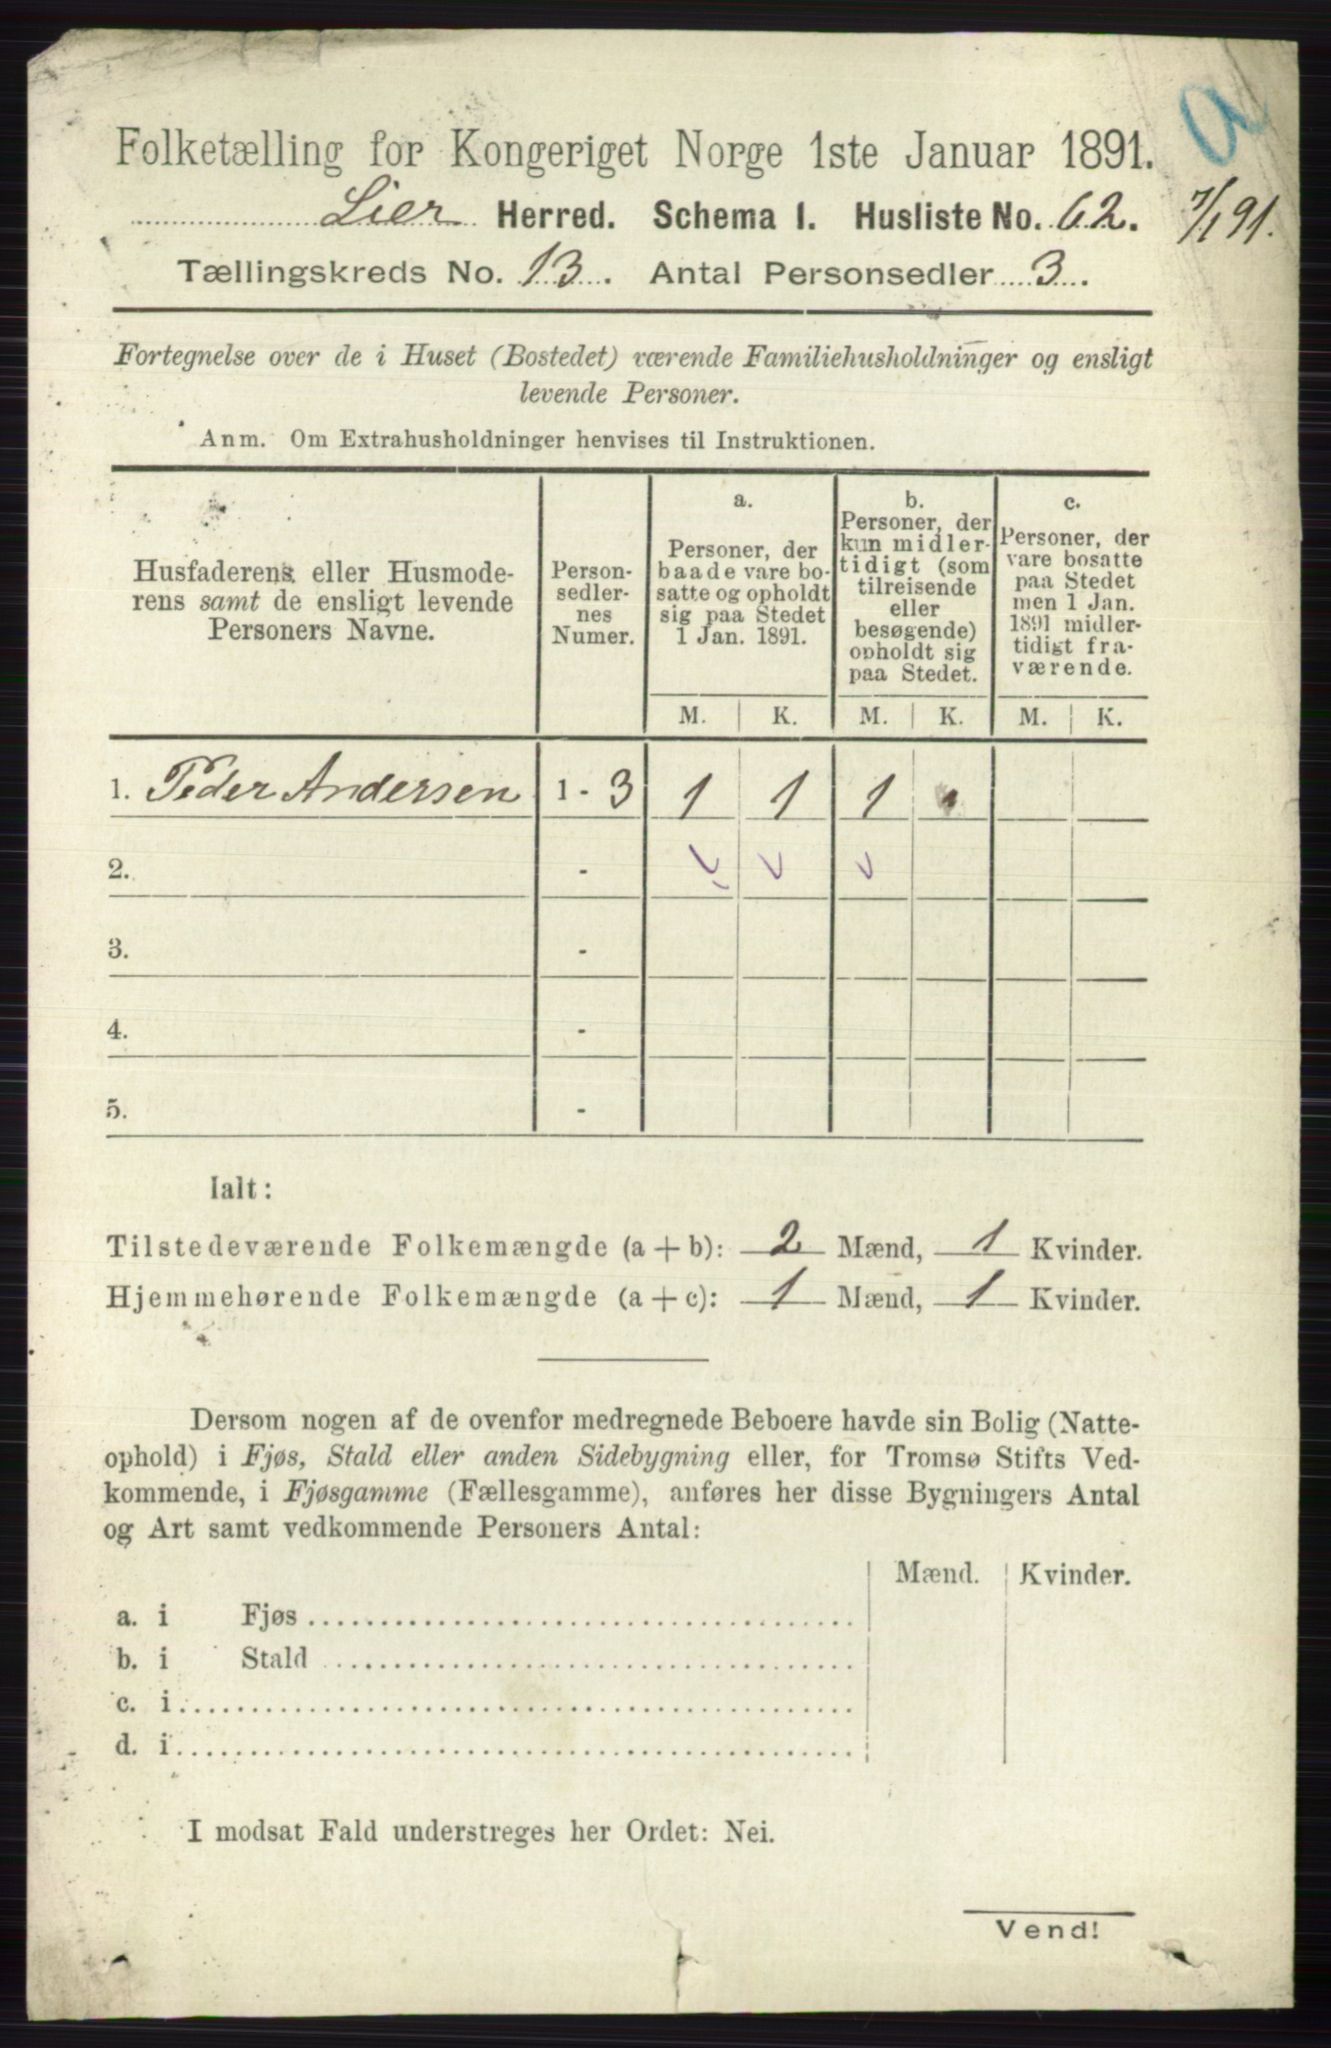 a
Folketælling for Kongeriget Norge 1ste Januar 1891.
Lier Herred. Schema I. Husliste No. 62. 7/1 91.
Tællingskreds No. 13. Antal Personsedler 3.
Fortegnelse over de i Huset (Bostedet) værende Familiehusholdninger og ensligt
levende Personer.
Anm. Om Extrahusholdninger henvises til Instruktionen.
Husfaderens eller Husmode-
rens samt de ensligt levende
Personers Navne.
Person-
sedler-
nes
Numer.
a.
Personer, der
baade vare bo-
satte og opholdt
sig paa Stedet
1 Jan. 1891.
b.
Personer, der
kun midler-
tidigt (som
tilreisende
eller
besøgende)
opholdt sig
paa Stedet.
c.
Personer, der
vare bosatte
paa Stedet
men 1 Jan.
1891 midler-
tidigt fra-
værende.
M. K. M. K. M. K.
1. Peder Andersen 1 - 3 1 1 1
2. - v v v
3. -
4. -
5. -
Ialt:
Tilstedeværende Folkemængde (a + b): 2 Mænd, 1 Kvinder.
Hjemmehørende Folkemængde (a + c): 1 Mænd, 1 Kvinder.
Dersom nogen af de ovenfor medregnede Beboere havde sin Bolig (Natte-
ophold) i Fjøs, Stald eller anden Sidebygning eller, for Tromsø Stifts Ved-
kommende, i Fjøsgamme (Fællesgamme), anføres her disse Bygningers Antal
og Art samt vedkommende Personers Antal:
Mænd. Kvinder.
a. i Fjøs
b. i Stald
c. i
d. i
I modsat Fald understreges her Ordet: Nei.
Vend!